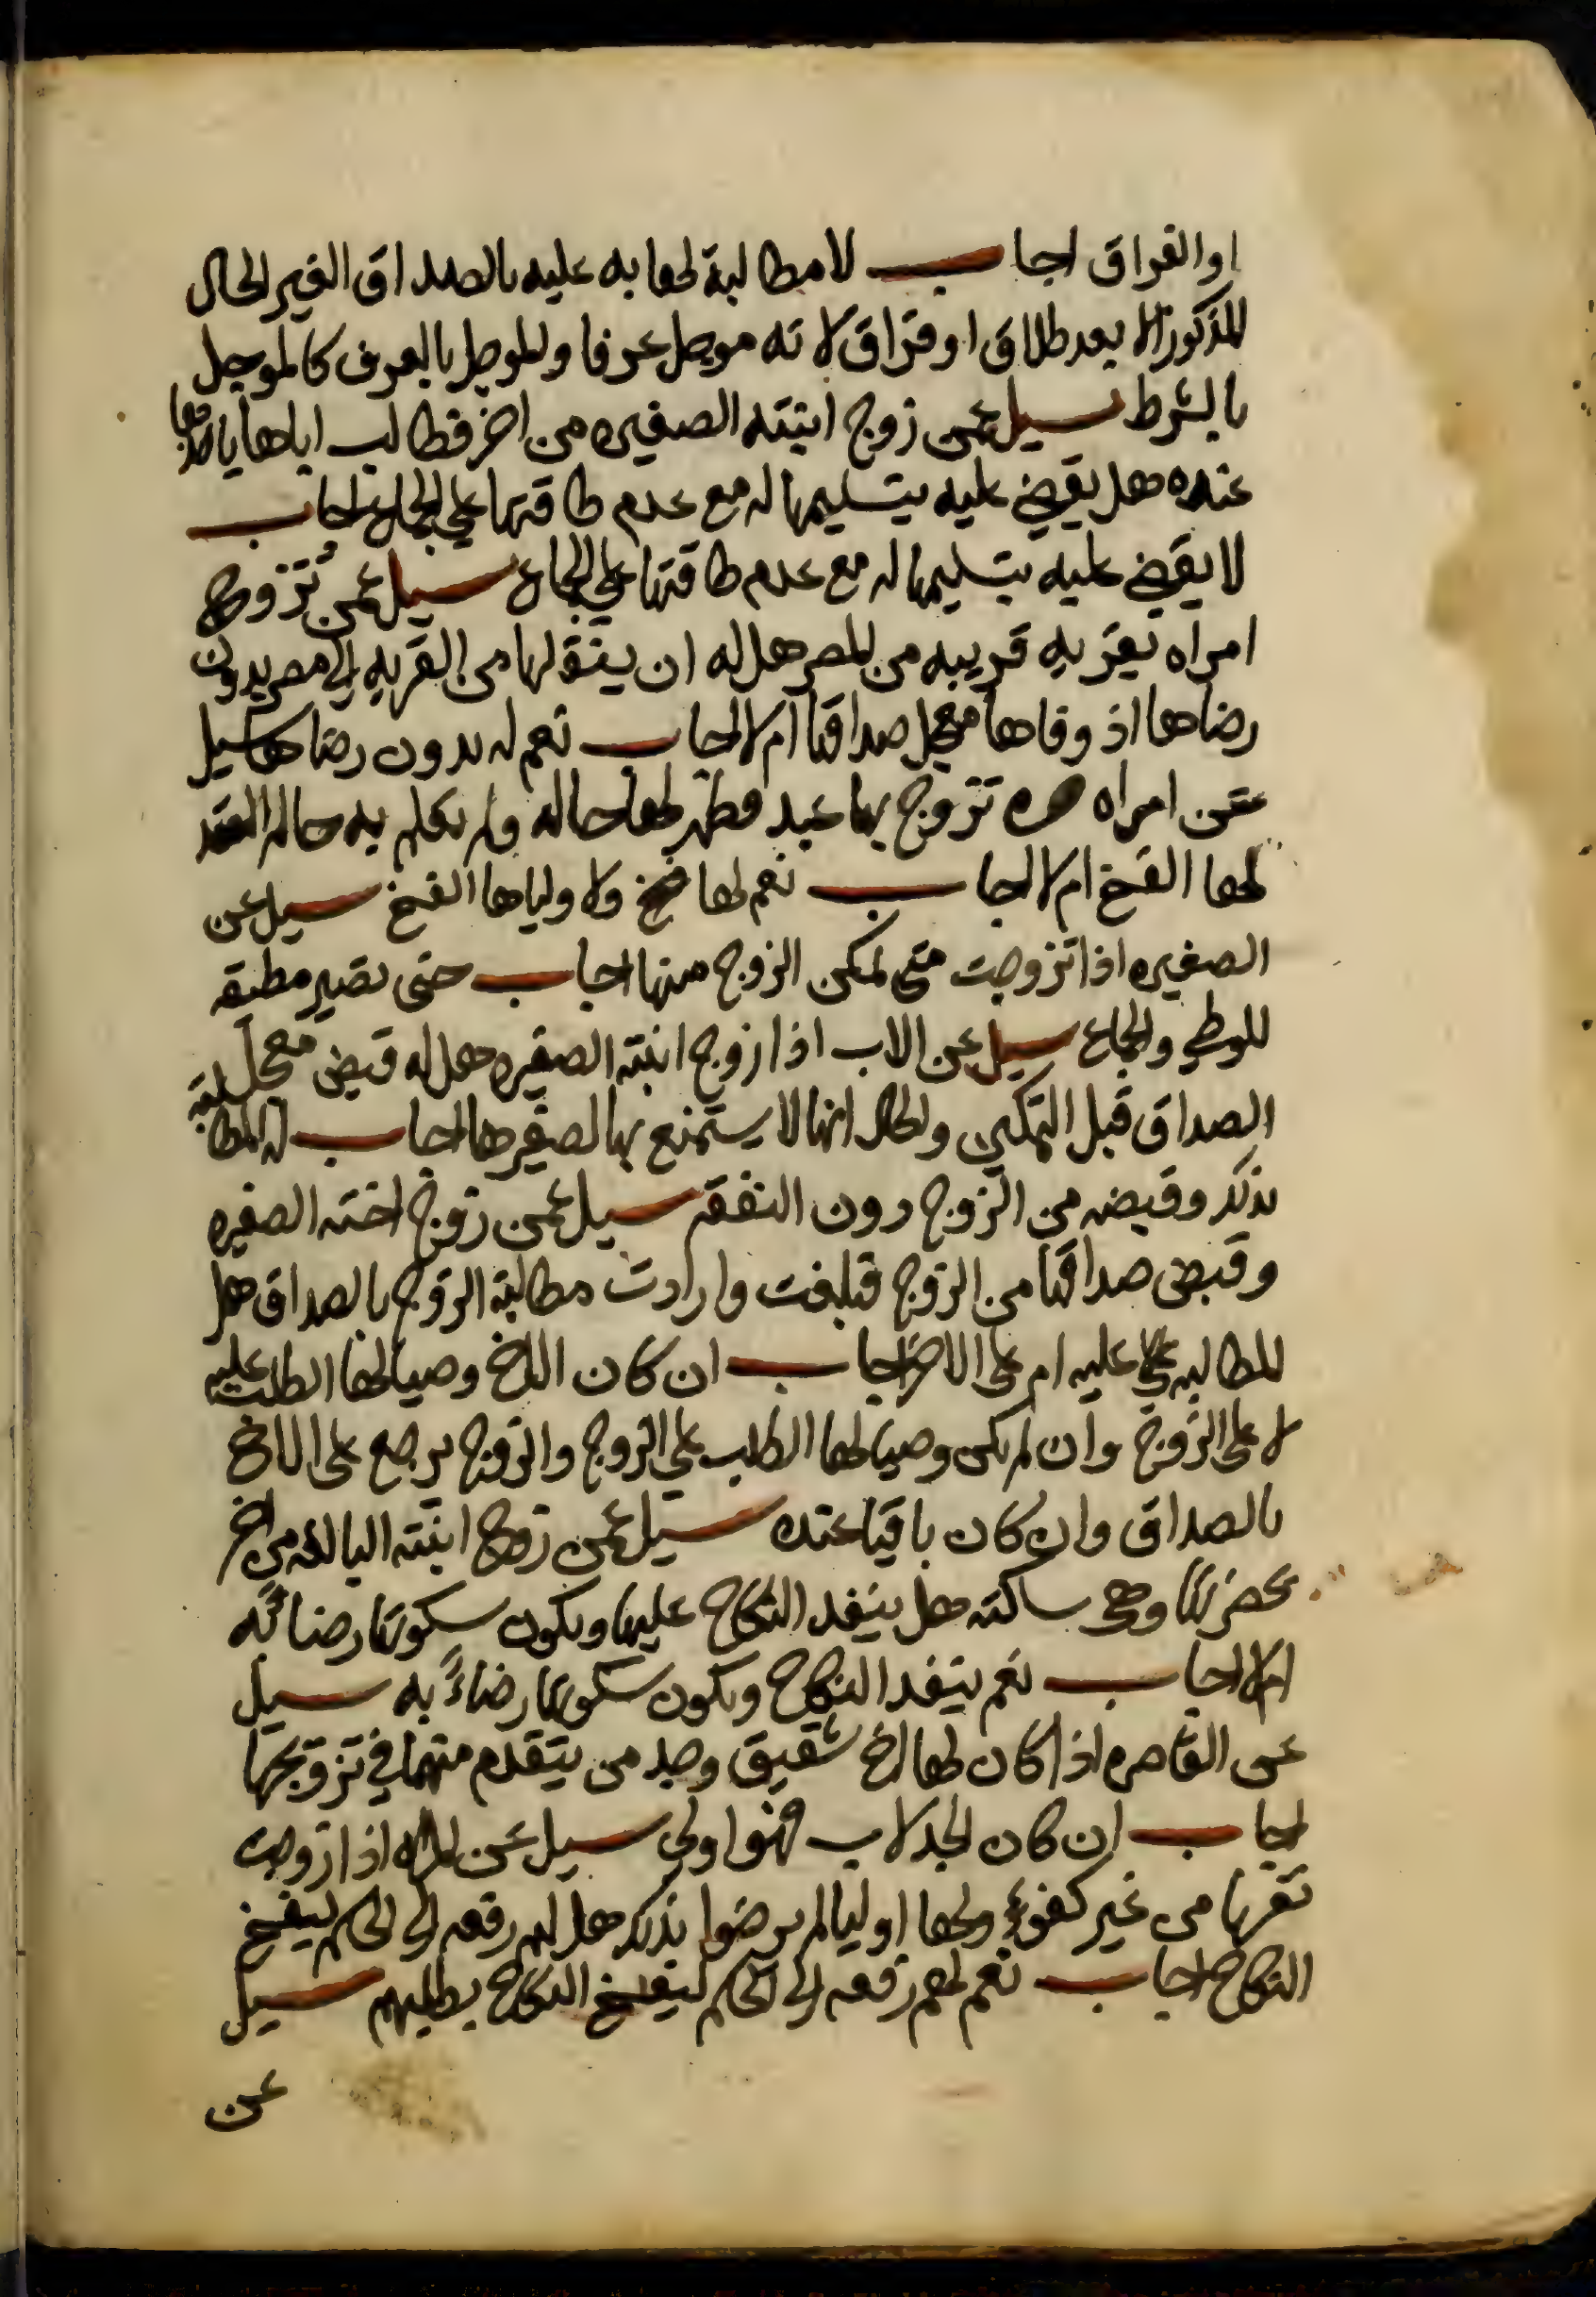 او الفراق اجاب لا مطالبة لها به عليه بالصداق الغير الحال
المذكور الا بعد طلاق او فراق لانه موجل عرفا والموجل بالعرف كالموجل
بالشرط سيل عمن زوج ابنته الصغيره من اخر فطالب اباها
عنده هل يقضي عليه بتسليمها له مع عدم طاقتها علي الجماع اجاب
لا يقضي عليه بتسليمها له مع عدم طاقتها علي الجماع سيل عمن تزوج
امراه بقريه قريبه من المصر هل له ان ينقلها من القريه الي مصر بدون
رضاها اذ وفاها معجل صداقها ام لا اجاب نعم له بدون رضاها سيل
عن امراه حره تزوج بها عبد فظهر لها حاله ولم تعلم به حالة العقد
لها الفسخ ام لا اجاب نعم لها فسخ ولاولياها الفسخ سيل عن
الصغيره اذا تزوجت متى تمكن الزوج منها اجاب حتى تصير مطيقه
للوطي والجماع سيل عن الاب اذا زوج ابنته الصغيره هل له قبض معجل
الصداق قبل التمكين والحال انها لا يستمتع بها لصغرها اجاب له المطالبة
بذلك وقبضه من الزوج دون النفقه سيل عمن زوج اخته الصغيره
وقبض صداقها من الزوج فبلغت وارادت مطالبة الزوج بالصداق هل
المطالبه عليه ام على الاخ اجاب ان كان الاخ وصيا لها الطلب عليه
لا على الزوج وان لم يكن وصيا لها الطلب علي الزوج والزوج يرجع على الاخ
بالصداق وان كان باقيا عنده سيل عمن زوج ابنته البالغه من اخر
بحضرتها وهي ساكته هل ينفد النكاح عليها ويكون سكوتها رضاً به
ام لا اجاب نعم ينفد النكاح ويكون سكوتها رضاءً به سيل
عن القاصره اذا كان لها اخ شقيق وجد من يتقدم منهما في تزويجها
اجاب ان كان الجد لاب فهوا ولي سيل عن المراه اذا زوجت
نفسها من غير كفوءٍ ولها اوليا لم يرضوا بذلك هل لهم رفعه الى الحاكم ليفسخ
النكاح اجاب نعم لهم رفعه الى الحاكم ليفسخ النكاح بطلبهم سيل
عن